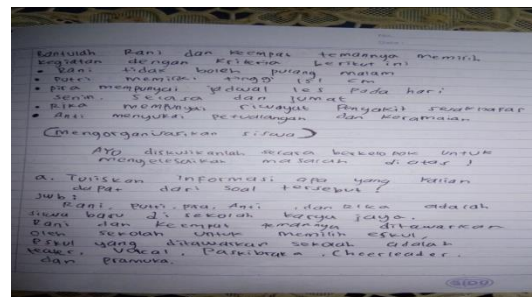 Bantulah Rani dan keempat temannya memilih
kegiatan dengan kriteria berikut ini
• Rani tidak boleh pulang malam
• Putri memiliki tinggi 151 cm
• Pira mempunyai jadwal les pada hari
senin, selasa dan jumat
• Rika mempunyai riwayat penyakit
• Anti menyukai petualangan dan keramaian
(Mengorganisasikan siswa)
Ayo diskusikanlah secara berkelompok untuk
menyelesaikan masalah di atas !
a. Tuliskan informasi apa yang kalian
dapat dari soal tersebut !
Jwb :
Rani, Putri, Pira, Anti, dan Rika adalah
siswa baru di sekolah karya jaya.
Rani dan keempat temannya ditawarkan
oleh sekolah untuk memilih eskul,
Eskul yang ditawarkan sekolah adalah
teater, vocal, Paskibraka, Cheerleader,
dan pramuka.